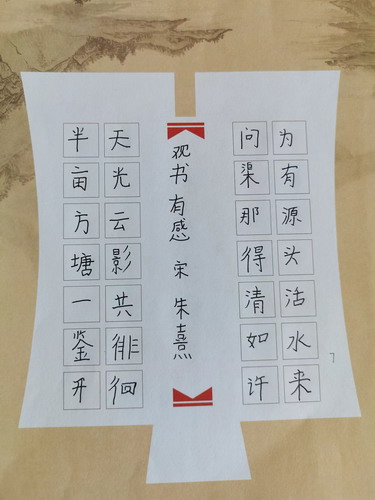 半亩方塘一鉴开
天光云影共徘徊
观书有感 宋 朱熹
问渠那得清如许
为有源头活水来